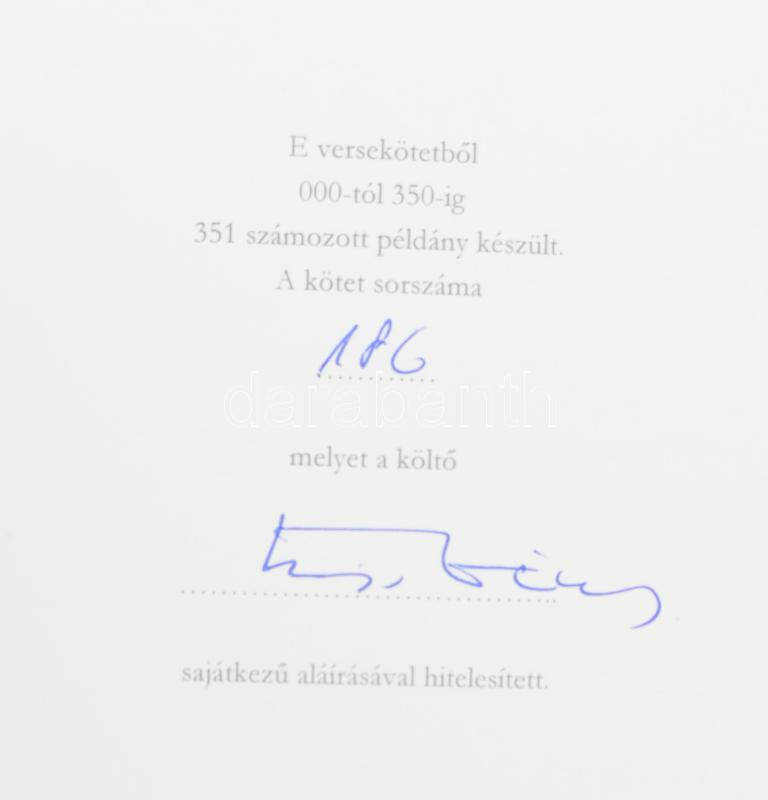 E versekötetből
000-tól 350-ig
351 számozott példány készült.
A kötet sorszáma
186
darabanth
melyet a költő
sajátkezű aláírásával hitelesített.